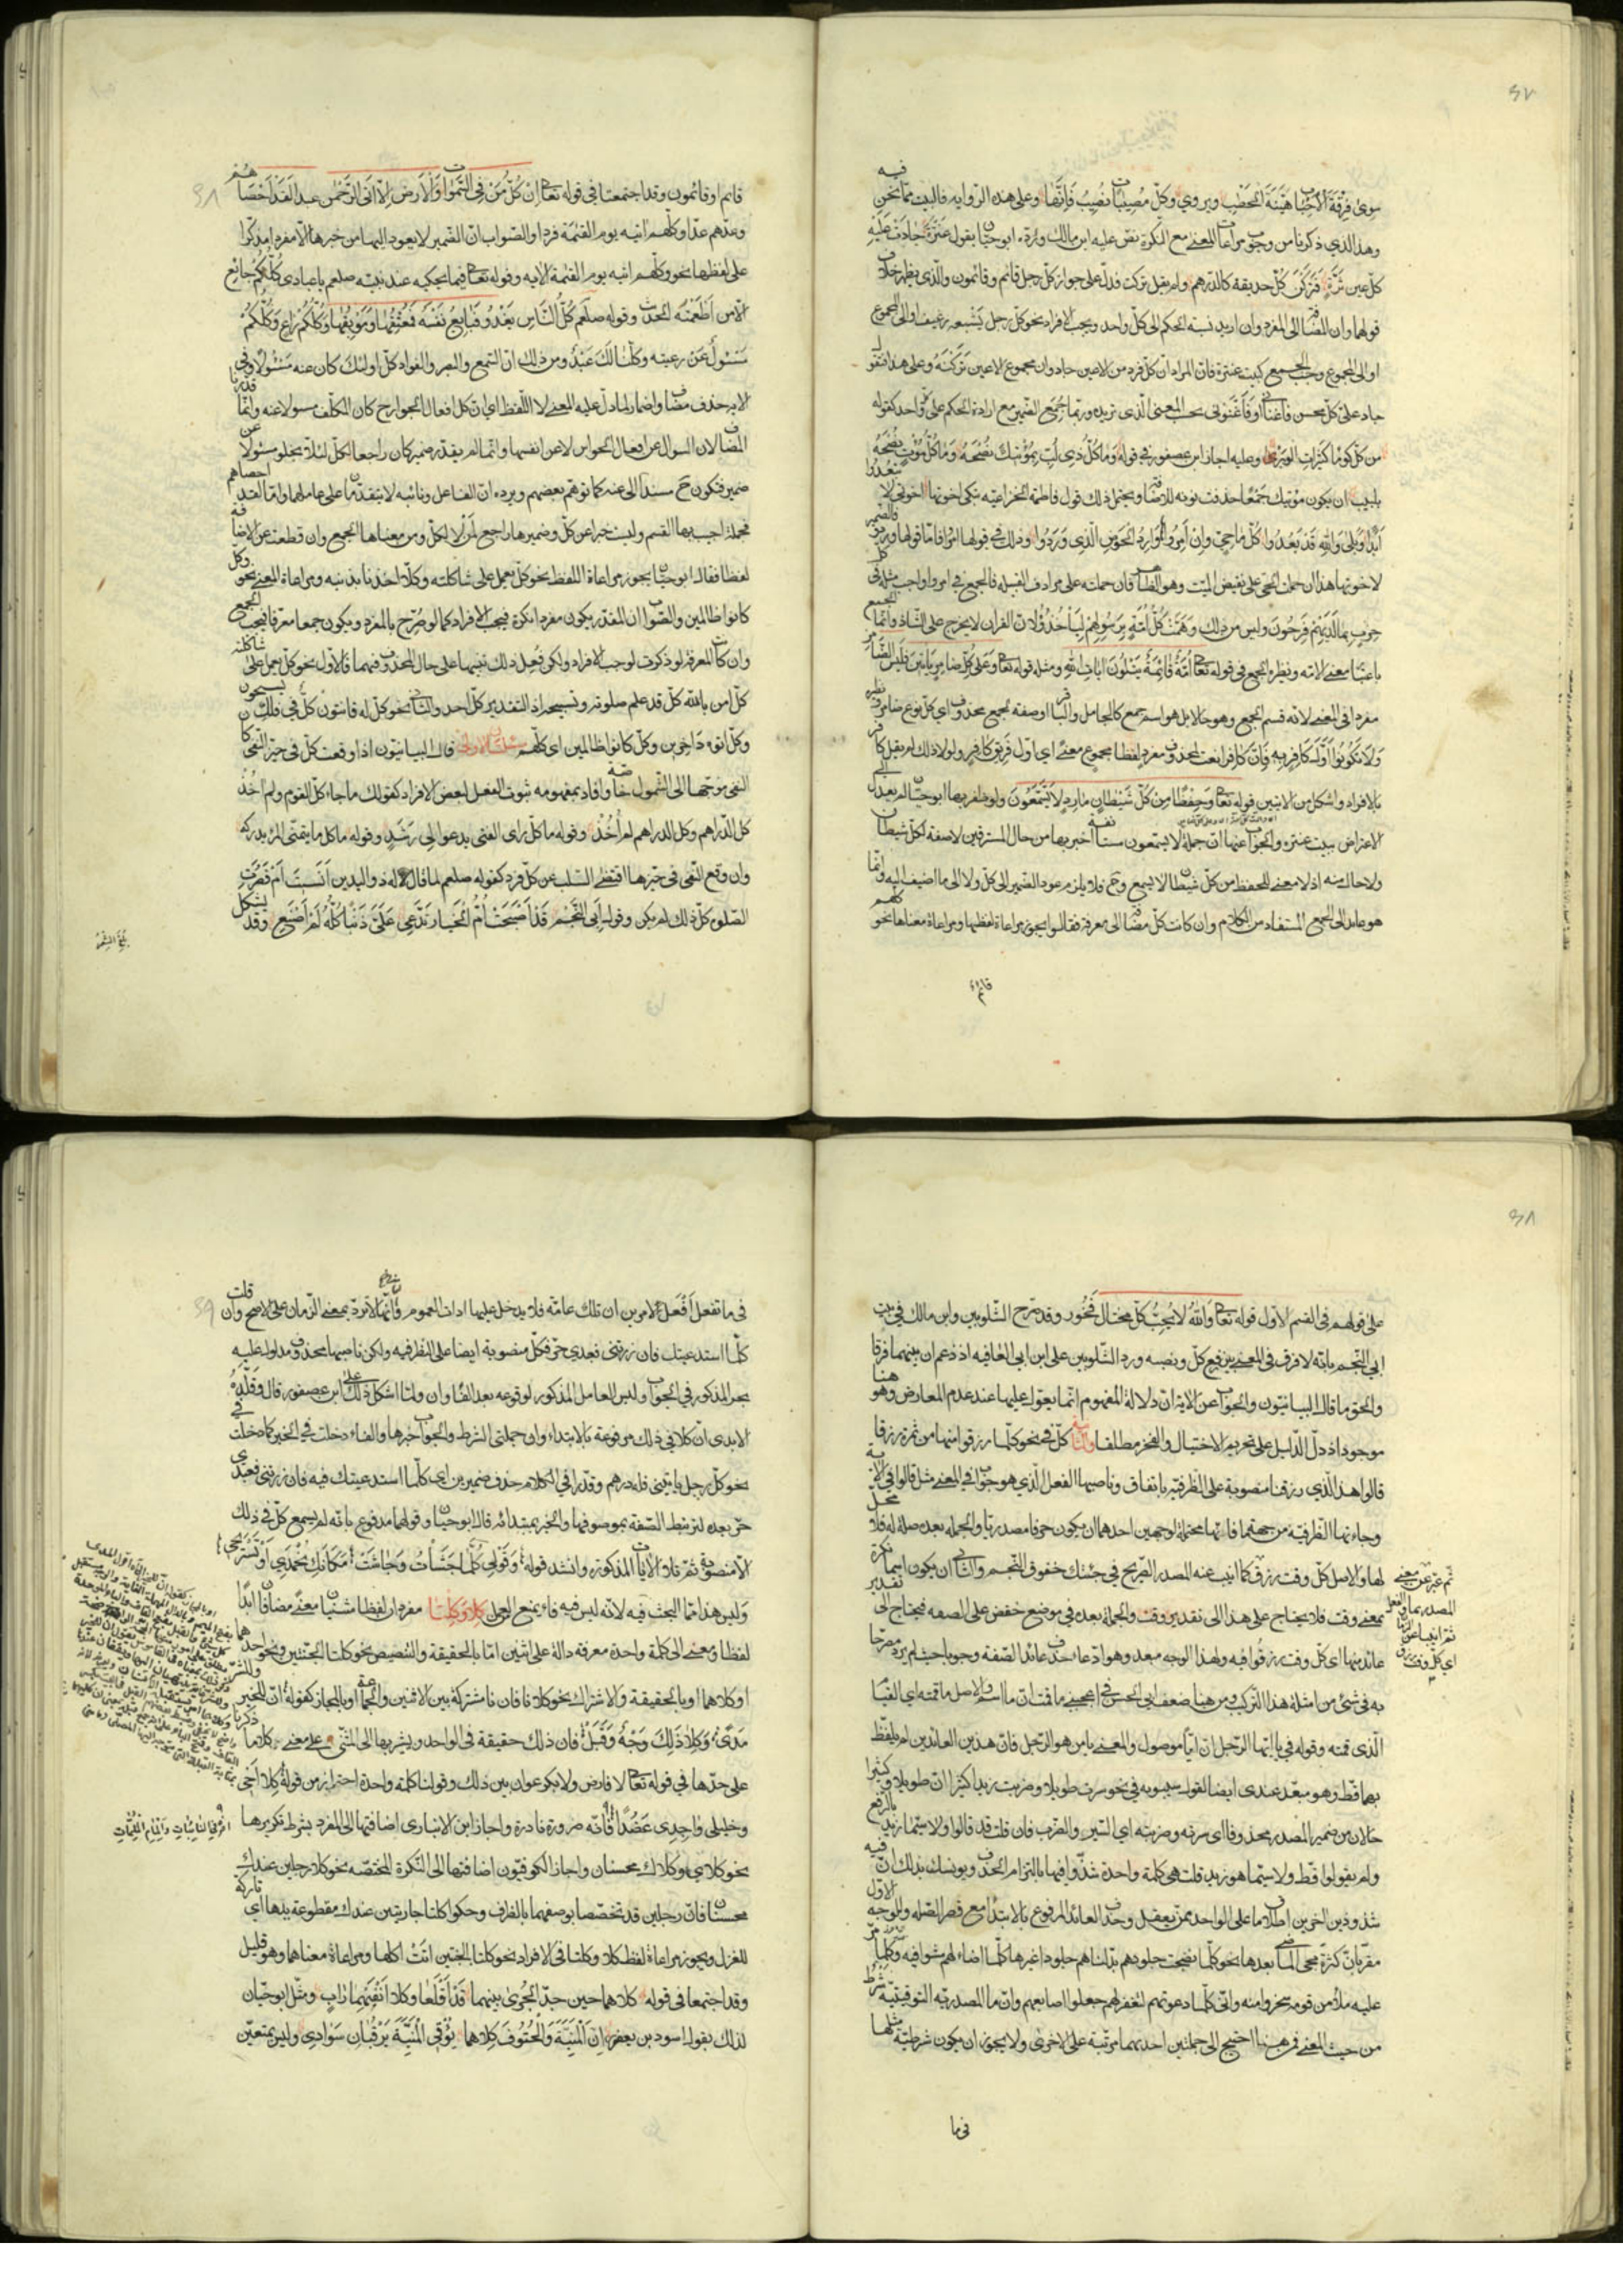 سوى فرقة الاحباب هينة الخطب ويروى وكل مصيبات تصيب فانها وعلى هذه الرواية فالبيت مما نحن فيه
وهذا الذي ذكرنا من وجوب مراعات المعنى مع النكرة نص عليه ابن مالك ورده ابوحيان بقول عنترة جادت عليه
كل عين ثرة فتركن كل حديقة كالدرهم ولم يقل تركت فدل على جواز كل رجل قائم وقائمون والذي يظهر خلاف
قولهما وان المضاف الى المفرد ان اريد نسبة الحكم الى كل واحد وجب الافراد نحو كل رجل يشبعه رغيف او الى المجموع
او الى المجموع وجب الجمع كبيت عنترة فان المراد ان كل فرد من الاعين جاد وان مجموع الاعين تركنه وعلى هذا فتقول
جاد على كل محسن فأغناني او فأغنوني بحسب المعنى الذي تريده وربما جمع الضمير مع ارادة الحكم على كل واحد كقوله
من كل كوماء كثيرات الوبر وعليه اجاز ابن عصفور في قوله وما كل ذي لب بمؤتيك نصحه وما كل مؤت نصحه
بلبيب ان يكون مؤتيك جمعا حذفت نونه للاضافة ويحتمل ذلك قول فاطمة الخزاعية تبكي اخوتها اخوتي لا تبعدوا
ابدا وبلى والله قد بعدوا كل ما حي وان امروا وارد الحوض الذي وردوا وذلك في قولها امروا فاما قولها وردوا فالضمير
لاخوتها هذا ان حملت الحي على نقيض الميت وهو الظاهر فان حملته على مرادف القبيلة فالجمع في امروا واجب مثله في كل
حزب بما لديهم فرحون وليس من ذلك وهمت كل امة برسولهم ليأخذوه لان القران لا يخرج على الشاذ وانما الجمع
باعتبار معنى الامة ونظيره الجمع في قوله تعالى امة قائمة يتلون ايات الله ومثله قوله تعالى وعلى كل ضامر يأتين فليس الضامر
مفردا في المعنى لانه قسيم الجمع وهو رجالا بل هو اسم جمع كالجامل والباقر او صفة لجمع محذوف اي كل نوع ضامر ونظيره
ولا تكونوا اول كافر به فان كافرا نعت لمحذوف مفرد لفظا مجموع معنى اي اول فريق كافر ولولا ذلك لم يقل كافر
بالافراد واشكل من الايتين قوله تعالى وحفظا من كل شيطان مارد لا يسمعون ولو ظفر بها ابوحيان لم يعدل الى
الاعتراض ببيت عنترة والجواب عنها ان جملة لا يسمعون مستأنفة اخبر بها من حال المسترقين لا صفة لكل شيطان
ولا حال منه اذ لا معنى للحفظ من كل شيطان لا يسمع وح فلا يلزم عود الضمير الى كل ولا الى ما اضيف اليه وانما
هو عائد الى الجمع المستفاد من الكلام وان كانت كل مضافة الى معرفة فقالوا يجوز مراعاة لفظها ومراعاة معناها نحو كلهم
قائم
قائم او قائمون وقد اجتمعتا في قوله تعالى ان كل من في السموات والارض الا اتي الرحمن عبدا لقد احصاهم
وعدهم عدا وكلهم اتيه يوم القيمة فردا والصواب ان الضمير لا يعود اليها من خبرها الا مفردا مذكرا
على لفظها نحو وكلهم اتيه يوم القيمة الاية وقوله تعالى فيما يحكيه عنه نبيه صلعم يا عبادي كلكم جائع
الا من اطعمته الحديث وقوله صلعم كل الناس يغدو فبائع نفسه فمعتقها او موبقها وكلكم راع وكلكم
مسئول عن رعيته وكلنا لك عبد ومن ذلك ان السمع والبصر والفؤاد كل اولئك كان عنه مسئولا وفي
الاية حذف مضاف واضمار لما دل عليه المعنى لا اللفظ اي ان كل افعال الجوارح كان المكلف مسئولا عنه وانما قدرنا
المضاف لان السؤال عن افعال الحواس لا عن انفسها وانما لم يقدر ضمير كان راجعا لكل لئلا يخلو مسئولا عن
ضمير فيكون ح مسندا الى عنه كما توهم بعضهم ويرده ان الفاعل ونائبه لا يتقدمان على عاملهما واما لقد احصاهم
فجملة اجيب بها القسم وليست خبرا عن كل وضميرها راجع لمن لا لكل ومن معناها الجمع وان قطعت عن الاضافة
لفظا فقال ابوحيان يجوز مراعاة اللفظ نحو كل يعمل على شاكلته وكلا اخذنا بذنبه ومراعاة المعنى نحو وكل
كانوا ظالمين والصواب ان المقدر يكون مفردا نكرة فيجب الافراد كما لو صرح بالمفرد ويكون جمعا معرفا فيجب الجمع
وان كانت المعرفة لو ذكرت لوجب الافراد ولكن فعل ذلك تنبيها على حال المحذوف فيهما فالاول نحو كل يعمل على شاكلته
كل امن بالله كل قد علم صلوته وتسبيحه اذ التقدير كل احد والثاني نحو كل له قانتون كل في فلك يسبحون
وكل اتوه داخرين وكل كانوا ظالمين اي كلهم مسئلتان الاولى قال البيانيون اذا وقعت كل في حيز النفي كان
النفي موجها الى الشمول خاصة وافاد بمفهومه ثبوت الفعل لبعض الافراد كقولك ما جاء كل القوم ولم اخذ
كل الدراهم وكل الدراهم لم اخذ وقوله ما كل رأى الفتى يدعو الى رشد وقوله ما كل ما يتمنى المرء يدركه
وان وقع النفي في حيزها اقتضى السلب عن كل فرد كقوله صلعم لما قال له ذو اليدين انسيت ام قصرت
الصلوة كل ذلك لم يكن وقول ابي النجم قد اصبحت ام الخيار تدعي علي ذنبا كله لم اصنع وقد يشكل
على قولهم في القسم الاول قوله تعالى والله لا يحب كل مختال فخور وقد صرح الشلوبين وابن مالك في بيت
ابي النجم بانه لا فرق في المعنى بين رفع كل ونصبه ورد الشلوبين على ابن ابي العافية اذ زعم ان بينهما فرقا
والحق ما قال البيانيون والجواب عن الاية ان دلالة المفهوم انما يعول عليها عند عدم المعارض وهو هنا
موجود اذ دل الدليل على تحريم الاختيال والفخر مطلقا والثانية كل في نحو كلما رزقوا منها من ثمرة رزقا
قالوا هذا الذي رزقنا منصوبة على الظرفية باتفاق وناصبها الفعل الذي هو جواب في المعنى مثل قالوا في الاية
وجاءتها الظرفية من جهة ما فانها محتملة لوجهين احدهما ان يكون حرفا مصدريا والجملة بعده صلة له فلا محل
لها والاصل كل وقت رزق كما انيب عنه المصدر الصريح في جئتك خفوق النجم والثاني ان يكون اسما نكرة
بمعنى وقت فلا يحتاج على هذا الى تقدير وقت والجملة بعده في موضع خفض على الصفة فيحتاج الى تقدير
عائد منها اي كل وقت رزقوا فيه ولهذا الوجه مبعد وهو ادعاء حذف عائد الصفة وجوبا حيث لم يرد مصرحا
به في شيء من امثلة هذا التركيب ومن هنا ضعف ابي الحسن في اعجبني ما قمت ان ما اسم والاصل ما قمته اي القيام
الذي قمته وقوله في يا ايها الرجل ان ايا موصول والمعنى يا من هو الرجل فان هذين العائدين لم يلفظ
بهما قط وهو مبعد عندي ايضا لقول سيبويه في نحو سرت طويلا وضربت زيدا كثيرا ان طويلا وكثيرا
حالان من ضمير المصدر محذوفا اي سرته وضربته اي السير والضرب فان قلت قد قالوا ولا سيما زيد بالرفع
ولم يقولوا قط ولا سيما هو زيد قلت هي كلمة واحدة شذوا فيها بالتزام الحذف ويونسك بذلك ان فيه
شذوذين اخرين اطلاق ما على الواحد ممن يعقل وحذف العائد المرفوع بالابتداء مع قصر الصلة والوجه الاول
مقربان كثرة مجيء الماضي بعدها نحو كلما نضجت جلودهم بدلناهم جلودا غيرها كلما اضاء لهم مشوا فيه وكلما مر
عليه ملأ من قومه سخروا منه واني كلما دعوتهم لتغفر لهم جعلوا اصابعهم وان ما المصدرية التوقيتية شرط
من حيث المعنى فمن هنا احتيج الى جملتين احديهما مرتبة على الاخرى ولا يجوز ان يكون شرطية مثلها
في ما
في ما تفعل افعل لامرين ان تلك عامة فلا يدخل عليها ادات العموم وانها لا ترد بمعنى الزمان على الاصح وان قلت
كلما استدعيتك فان زرتني فعبدي حر فكل منصوبة ايضا على الظرفية ولكن ناصبها محذوف مدلول عليه
بحر المذكور في الجواب وليس العامل المذكور لوقوعه بعد الفاء وان ولما اشكل ذلك على ابن عصفور قال وقلده
الابدي ان كلا في ذلك مرفوعة بالابتداء وان جملتي الشرط والجواب خبرها والفاء دخلت في الخبر كما دخلت في
نحو كل رجل يأتيني فله درهم وقدرا في الكلام حذف ضميرين اي كلما استدعيتك فيه فان زرتني فعبدي
حر بعده لترتبط الصفة بموصوفها والخبر بمبتدائه قال ابوحيان وقولهما مدفوع بانه لم يسمع كل في ذلك
الا منصوبة ثم تلا الايات المذكورة وانشد قوله وقولي كلما جشأت وجاشت مكانك تحمدي او تستريحي
وليس هذا مما البحث فيه لانه ليس فيه ما يمنع العمل كلا وكلتا مفردان لفظا مثنيان معنى مضافان ابدا
لفظا ومعنى الى كلمة واحدة معرفة دالة على اثنين اما بالحقيقة والتنصيص نحو كلتا الجنتين ونحو احدهما
او كلاهما او بالحقيقة والاشتراك نحو كلانا فان نا مشتركة بين الاثنين والجماعة او بالمجاز كقوله ان للخير وللشر
مدى وكلا ذلك وجه وقبل فان ذلك حقيقة في الواحد ويشير بها الى المثنى على معنى وكلا ما ذكرنا
على حدها في قوله تعالى لا فارض ولا بكر عوان بين ذلك وقولنا كلمة واحدة احتراز من قوله كلا اخي
وخليلي واجدي عضدا فانه ضرورة نادرة واجاز ابن الانباري اضافتها الى المفرد بشرط تكريرها
نحو كلاي وكلاك محسنان واجاز الكوفيون اضافتها الى النكرة المختصة نحو كلا رجلين عندك
محسنان فان رجلين قد تخصصا بوصفهما بالظرف وحكوا كلتا جاريتين عندك مقطوعة يدها اي تاركة
للغزل ويجوز مراعاة لفظ كلا وكلتا في الافراد نحو كلتا الجنتين اتت اكلها ومراعاة معناهما وهو قليل
وقد اجتمعا في قوله كلاهما حين جد الجري بينهما قد اقلعا وكلا انفيهما رابي ومثل ابوحيان
لذلك بقول اسود بن يعفر ان المنية والحتوف كلاهما يوفي المنية يرقبان سوادي وليس بمتعين